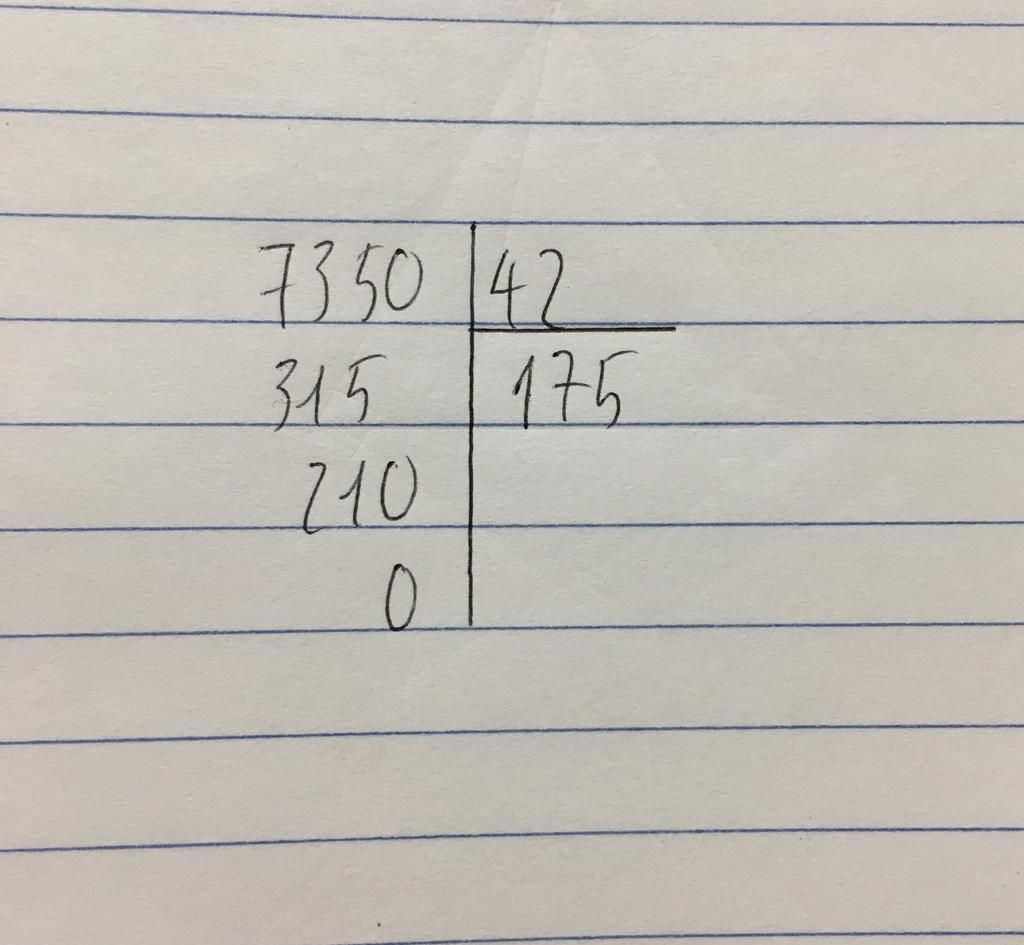 7350 42
315 175
210
0